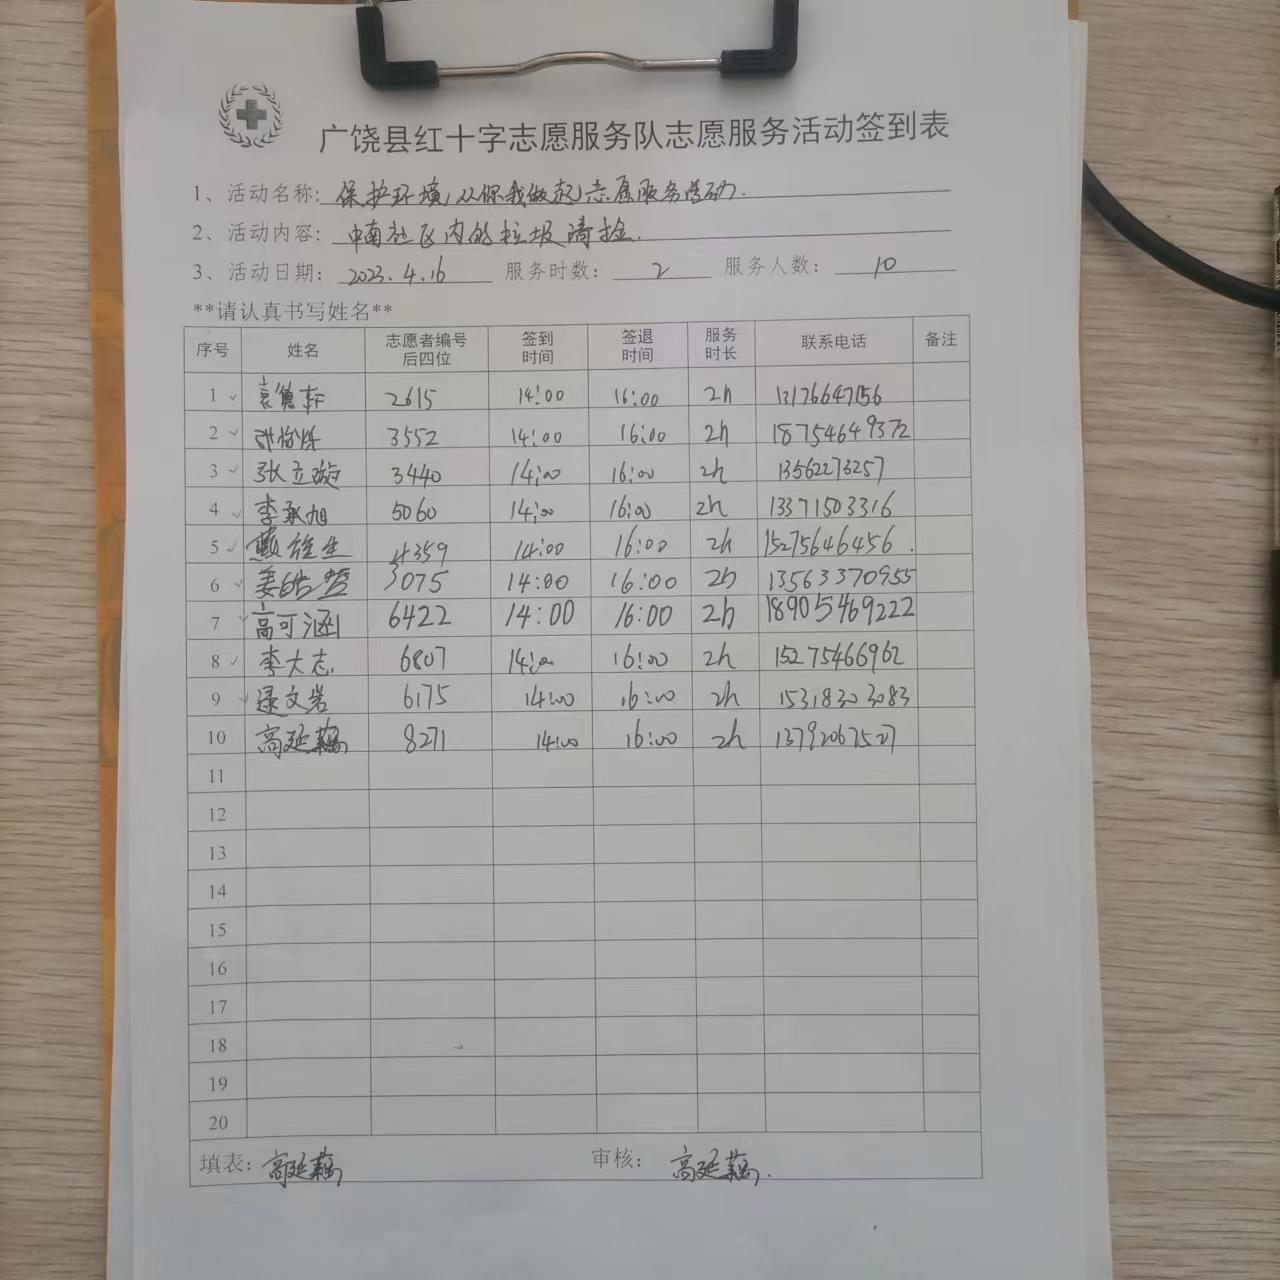 广饶县红十字志愿服务队志愿服务活动签到表
1、活动名称: 保护环境,从你我做起,志愿服务活动.
2、活动内容: 中南社区内的垃圾清捡.
3、活动日期: 2023.4.16 服务时数: 2 服务人数: 10
**请认真书写姓名**
序号 姓名 志愿者编号后四位 签到时间 签退时间 服务时长 联系电话 备注
1 袁德轩 2615 14:00 16:00 2h 13176647156
2 3552 14:00 16:00 2h 18754649372
3 张立璇 3440 14:00 16:00 2h 13562273257
4 李承旭 5060 14:00 16:00 2h 13371503316
5 4359 14:00 16:00 2h 15275646456.
6 姜皓 3075 14:00 16:00 2h 13563370955
7 高可涵 6422 14:00 16:00 2h 18905469222
8 李大志 6807 14:00 16:00 2h 15275466962
9 文岩 6175 14:00 16:00 2h 15318303083
10 高延藕 8271 14:00 16:00 2h 13792067527
11
12
13
14
15
16
17
18
19
20
填表: 高延藕 审核: 高延藕.